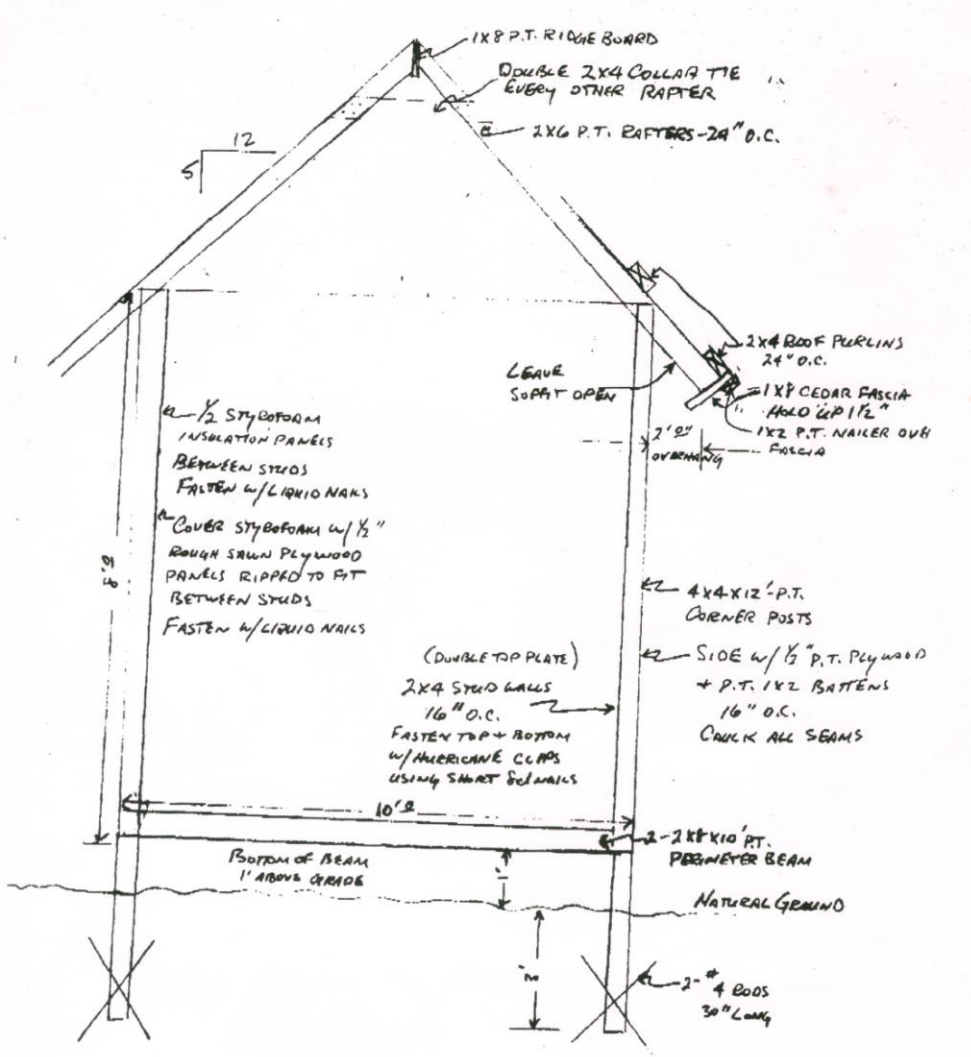 1X8 P.T. RIDGE BOARD
DOUBLE 2X4 COLLAR TIE
EVERY OTHER RAFTER
2X6 P.T. RAFTERS-24" O.C.
12
5
2X4 ROOF PURLINS
24" O.C.
LEAVE
SOFFIT OPEN
1X8 CEDAR FASCIA
HOLD UP 1 1/2"
1X2 P.T. NAILER OVER
FASCIA
2'0"
OVERHANG
1/2 STYROFOAM
INSULATION PANELS
BETWEEN STUDS
FASTEN W/LIQUID NAILS
COVER STYROFOAM W/ 1/2"
ROUGH SAWN PLYWOOD
PANELS RIPPED TO FIT
BETWEEN STUDS
FASTEN W/LIQUID NAILS
8'0
4X4X12'-P.T.
CORNER POSTS
SIDE W/ 1/2" P.T. PLYWOOD
+ P.T. 1X2 BATTENS
16" O.C.
CAULK ALL SEAMS
(DOUBLE TOP PLATE)
2X4 STUD WALLS
16" O.C.
FASTEN TOP + BOTTOM
W/HURRICANE CLIPS
USING SHORT NAILS
10'0
2-2X8X10' P.T.
PERIMETER BEAM
BOTTOM OF BEAM
1' ABOVE GRADE
1'
NATURAL GROUND
2-#4 RODS
30" LONG